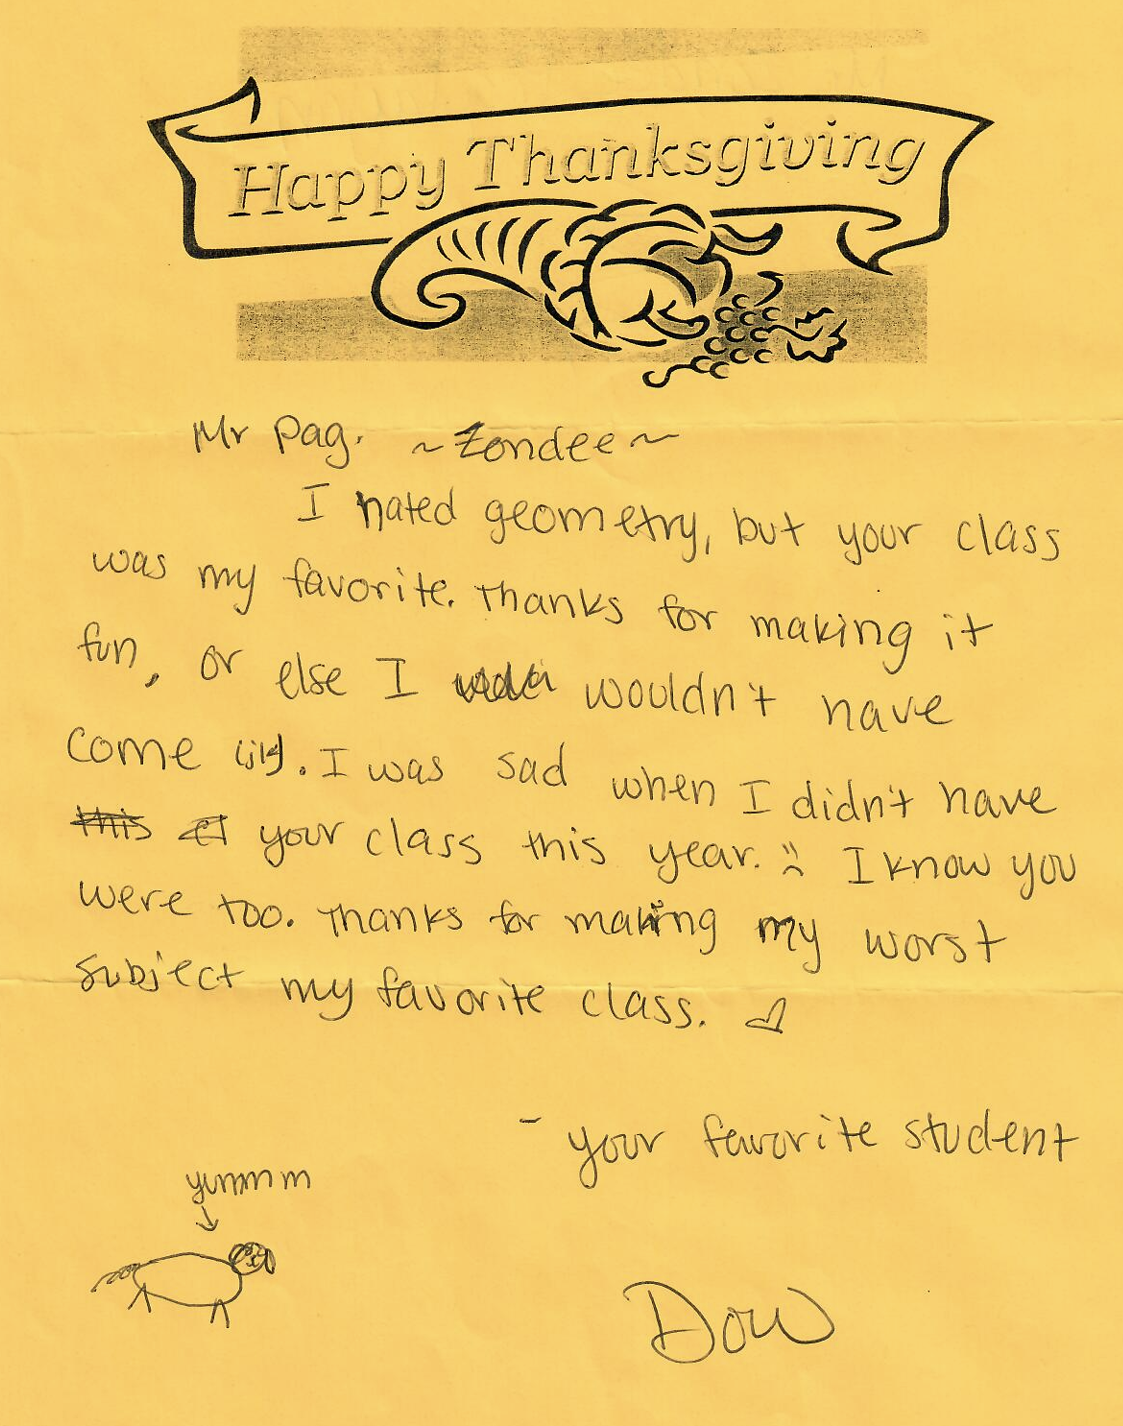 Happy Thanksgiving
Mr Pag. ~Zondee~
I hated geometry, but your class
was my favorite. Thanks for making it
fun, or else I wouldn't have
come lol. I was sad when I didn't have
this your class this year. :( I know you
were too. Thanks for making my worst
subject my favorite class. ♡
- your favorite student
yummm
Dow